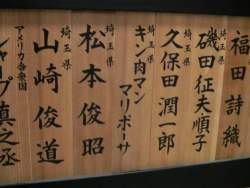 福田詩織
埼玉県
磯田征夫順子
埼玉県
久保田潤一郎
キン肉マン
マリポーサ
埼玉県
松本俊昭
埼玉県
山崎俊道
アメリカ合衆国
シャープ真之丞